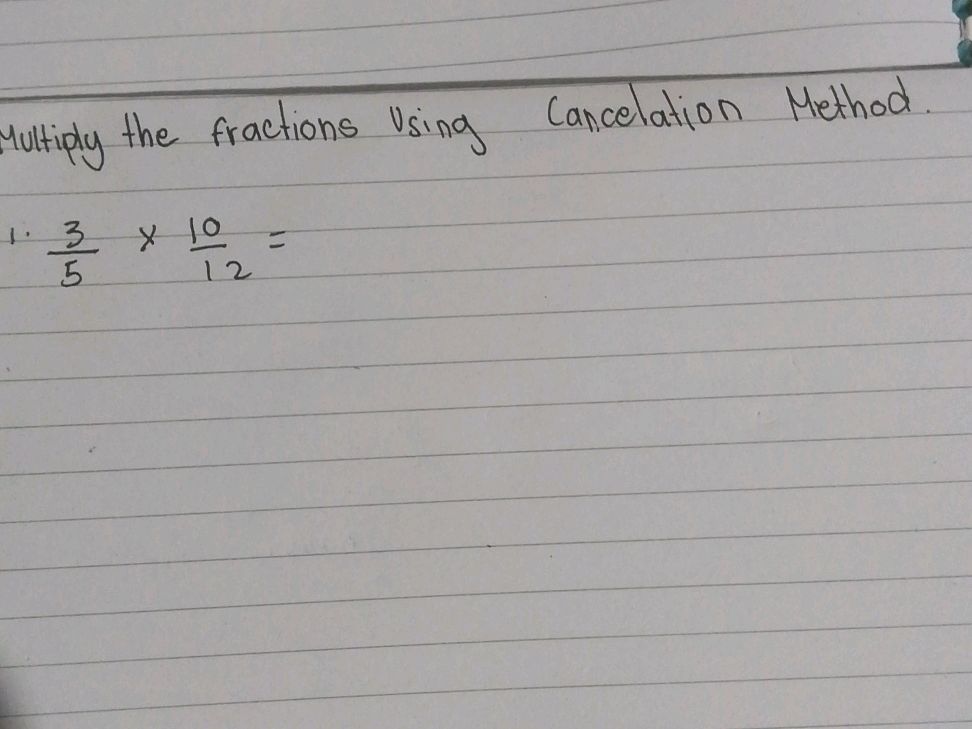 Multiply the fractions Using Cancelation Method.
1. 3/5 x 10/12 =